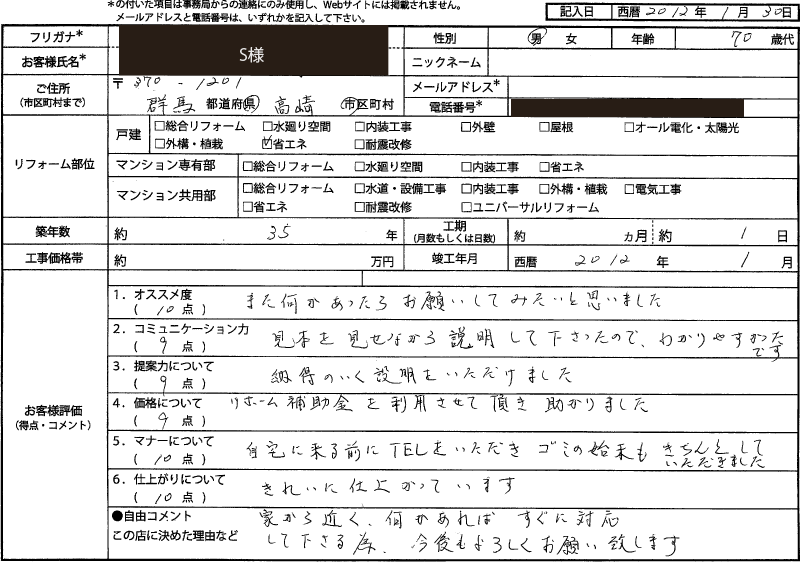 *の付いた項目は事務局からの連絡にのみ使用し、Webサイトには掲載されません。
メールアドレスと電話番号は、いずれかを記入して下さい。
記入日 西暦 2012 年 1 月 30 日
フリガナ* 性別 男 女 年齢 70 歳代
お客様氏名* S様 ニックネーム
ご住所 (市区町村まで) 〒 370-1201 メールアドレス*
群馬 都道府県 高崎 市区町村 電話番号*
リフォーム部位
戸建 □総合リフォーム □水廻り空間 □内装工事 □外壁 □屋根 □オール電化・太陽光
□外構・植栽 ☑省エネ □耐震改修
マンション専有部 □総合リフォーム □水廻り空間 □内装工事 □省エネ
マンション共用部 □総合リフォーム □水道・設備工事 □内装工事 □外構・植栽 □電気工事
□省エネ □耐震改修 □ユニバーサルリフォーム
築年数 約 35 年 工期 (月数もしくは日数) 約 カ月 約 1 日
工事価格帯 約 万円 竣工年月 西暦 2012 年 1 月
お客様評価
(得点・コメント)
1．オススメ度
( 10 点 ) また何かあったら お願いしてみたいと思いました
2．コミュニケーション力
( 9 点 ) 見本を見せながら 説明して下さったので、わかりやすかったです
3．提案力について
( 9 点 ) 納得のいく説明をいただけました
4．価格について
( 9 点 ) リホーム補助金を利用させて頂き助かりました
5．マナーについて
( 10 点 ) 自宅に来る前にTELをいただき ゴミの始末も きちんとしていただきました
6．仕上がりについて
( 10 点 ) きれいに仕上がっています
●自由コメント
この店に決めた理由など
家から近く、何かあれば すぐに対応
して下さる為、今後もよろしくお願い致します